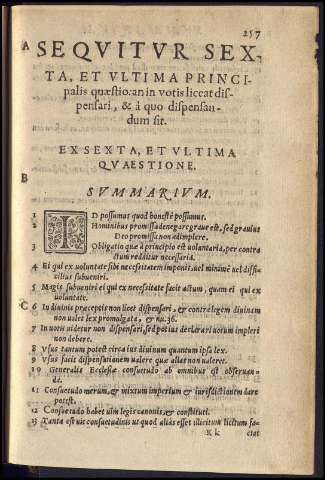 257
A
SEQVITVR SEX-
TA, ET VLTIMA PRINCI-
palis quæstio: an in votis liceat dis-
pensari, & à quo dispensan-
dum sit.
EX SEXTA, ET VLTIMA
QVAESTIONE.
B
SVMMARIVM.
1 ID possumus quod honestè possumus.
2 Hominibus promissa denegare graue est, sed grauius
Deo promissa non adimplere.
3 Obligatio quæ à principio est voluntaria, per contra
ctum redditur necessaria.
4 Ei qui ex voluntate sibi necessitatem imponit, vel minimè vel diffi-
cilius subueniri.
5 Magis subueniri ei qui ex necessitate facit actum, quam ei qui ex
voluntate.
C
6 In diuinis præceptis non licet dispensari, & contra legem diuinam
non valet lex promulgata, & nu. 36.
7 In votis videtur non dispensari, sed potius declarari votum impleri
non debere.
8 Vsus tantum potest circa ius diuinum quantum ipsa lex.
9 Vsus facit dispensationem valere quæ aliàs non valeret.
10 Generalis Ecclesiæ consuetudo ab omnibus est obseruan-
da.
11 Consuetudo merum, & mixtum imperium & iurisdictionem dare
potest.
12 Consuetudo habet vim legis canonis, & constituti.
13 Tanta est vis consuetudinis vt quod aliàs esset illicitum licitum fa-
Kk ciat